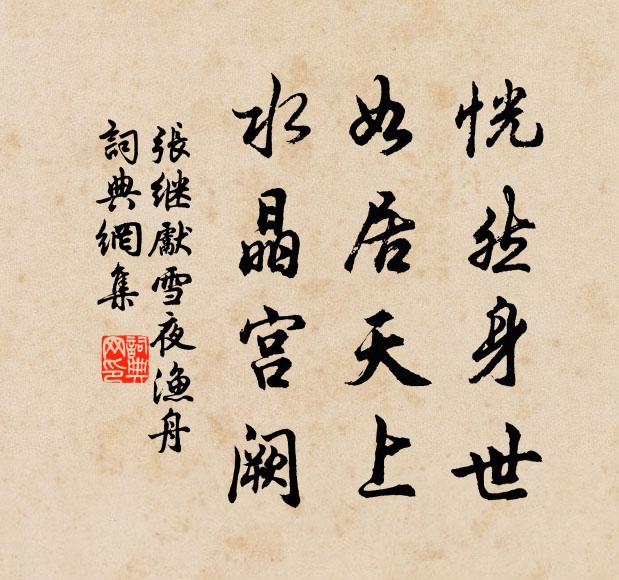 恍然身世
如居天上
水晶宫阙
張继獻雪夜漁舟
詞典網集
詞典
网印